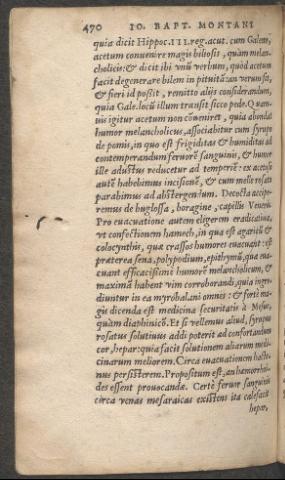 470 IO. BAPT. MONTANI
quia dicit Hippoc. III. reg. acut. cum Galeni,
acetum conuenire magis biliosis, quàm melan-
cholicis: & dicit ibi vnū verbum, quòd acetum
facit degenerare bilem in pituitā: an verum sit,
& fieri id possit, remitto alijs considerandum,
quia Gale. locū illum transit sicco pede. Quam-
uis igitur acetum non cōueniret, quia abundat
humor melancholicus, associabitur cum syrupo
de pomis, in quo est frigiditas & humiditas ad
contemperandum feruorē sanguinis, & humor
ille adustus reducetur ad temperiē: ex aceto
autē habebimus incisionē, & cum melle rosato
parabimus ad abstergentum. Decocta accipe-
remus de buglossa, boragine, capillis Veneris.
Pro euacuatione autem eligerem eradicatiua,
vt confectionem hamech, in qua est agaricū &
colocynthis, quæ crassos humores euacuant: est
præterea sena, polypodium, epithymū, quæ eua-
cuant efficacissimè humorē melancholicum, &
maximā habent vim corroborandi, quia ingre-
diuntur in ea myrobalani omnes: & fortè ma-
gis dicenda est medicina securitatis à Mesue,
quàm diaphinicō. Et si vellemus aliud, syrupus
rosatus solutiuus addi poterit ad confortandum
cor, hepar: quia facit solutionem aliarum medi-
cinarum meliorem. Circa euacuationem hacte-
nus perstiterem. Propositum est, an hæmorrhoi-
des essent prouocandæ. Certè feruor sanguinis
circa venas mesaraicas existens ita calefacit
hepar,